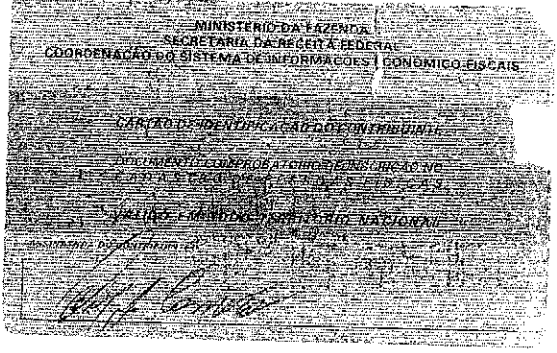 MINISTERIO DA FAZENDA
SECRETARIA DA RECEITA FEDERAL
COORDENAÇÃO DO SISTEMA DE INFORMAÇÕES CONÔMICO-FISCAIS
CARTÃO DE IDENTIFICAÇÃO DO CONTRIBUINTE
DOCUMENTO COMPROBATÓRIO DE INSCRIÇÃO NO
CADASTRO DE
VÁLIDO EM TODO TERRITÓRIO NACIONAL
ASSINATURA DO